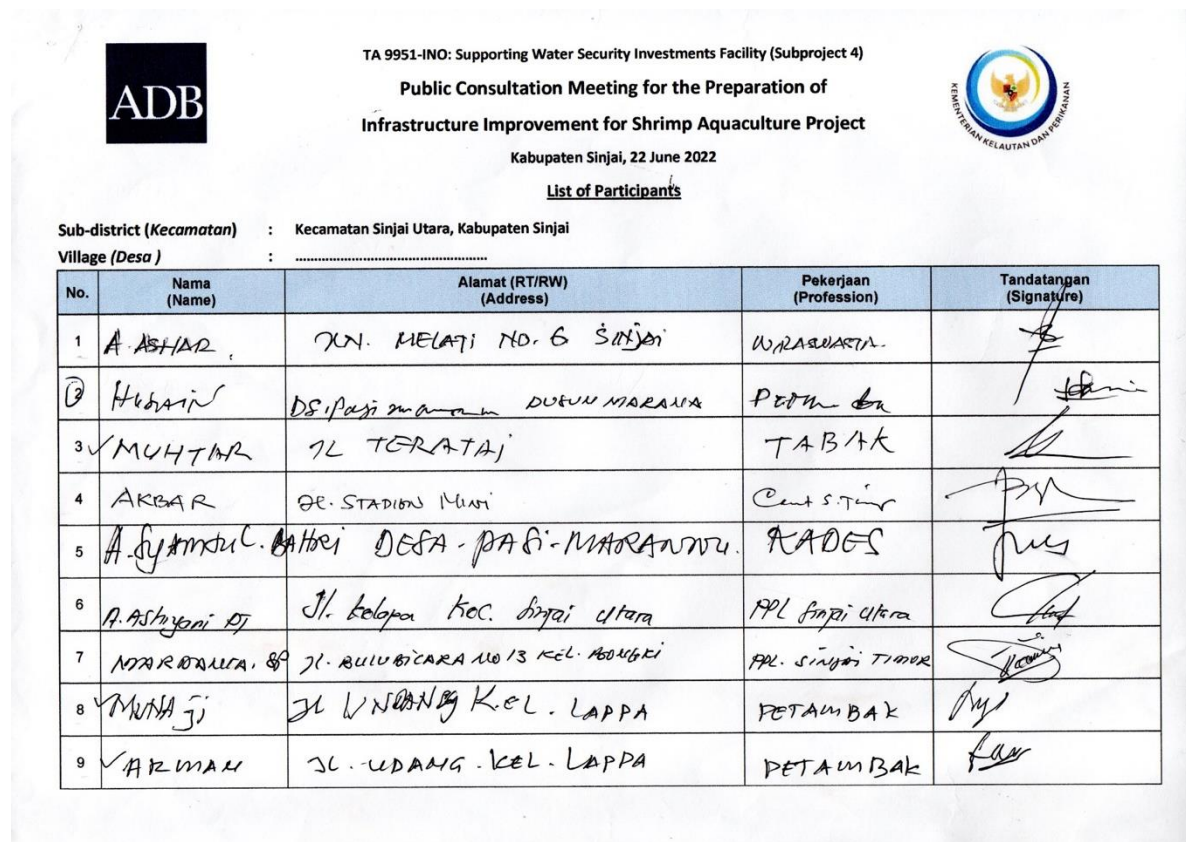 ADB
TA 9951-INO: Supporting Water Security Investments Facility (Subproject 4)
Public Consultation Meeting for the Preparation of
Infrastructure Improvement for Shrimp Aquaculture Project
Kabupaten Sinjai, 22 June 2022
List of Participants
KEMENTERIAN KELAUTAN DAN PERIKANAN
Sub-district (Kecamatan) : Kecamatan Sinjai Utara, Kabupaten Sinjai
Village (Desa ) : ....................................................
No. Nama (Name) Alamat (RT/RW) (Address) Pekerjaan (Profession) Tandatangan (Signature)
1 A. ASHAR. JLN. MELATI NO. 6 SINJAI WIRASWASTA.
2 HUSAIN DS. DUSUN MARANA
3 MUHTAR JL TERATAI TABAK
4 AKBAR JL. STADION MINI
5 A. SYAMSUL. BAHRI DESA-PASI-MARANNU. KADES
6 A. Ashryani Jl. kelapa Kec. Sinjai Utara PPL Sinjai Utara
7 MARDANIA. SP Jl. BULU BICARA NO 13 KEL. BONGKI PPL. SINJAI TIMUR
8 MUHAJI JL UNDANG KEL. LAPPA PETAMBAK
9 ARMAN JL. UDANG. KEL. LAPPA PETAMBAK